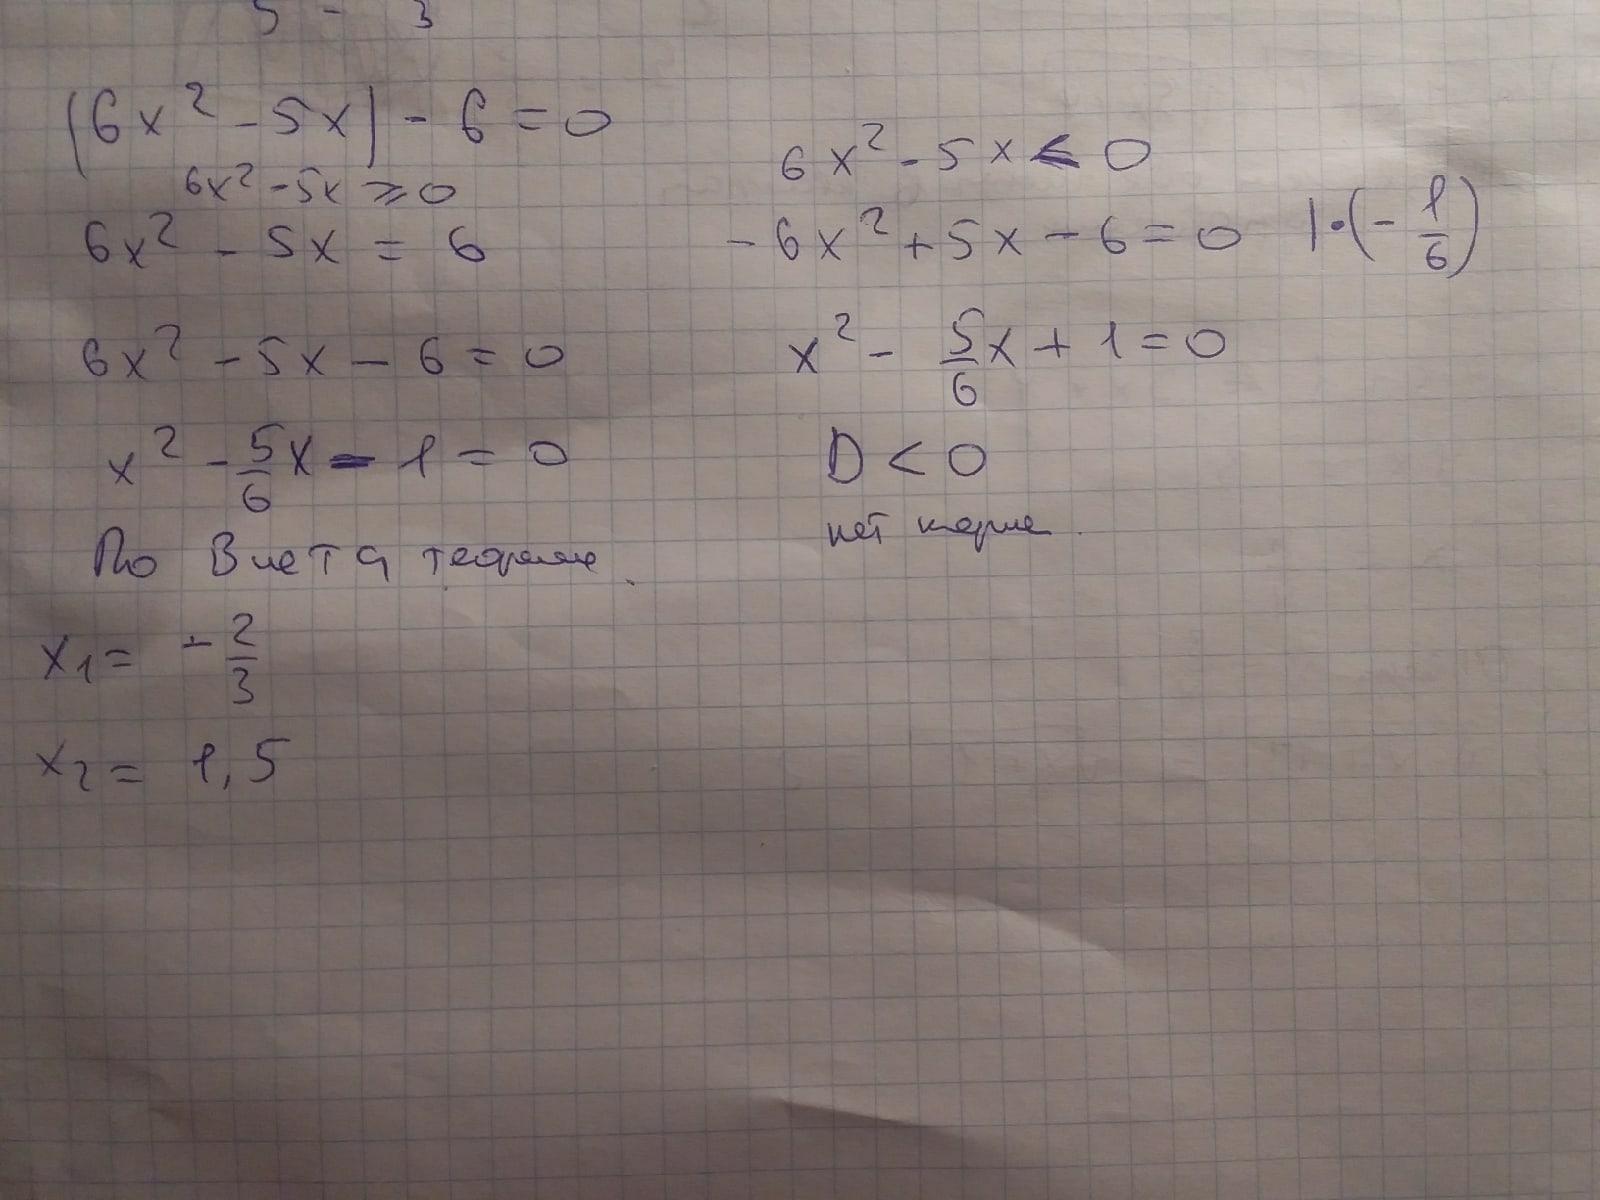 5 - 3
|6x² - 5x| - 6 = 0
6x² - 5x ≥ 0
6x² - 5x = 6
6x² - 5x - 6 = 0
x² - 5/6 x - 1 = 0
По Виета теореме.
x₁ = - 2/3
x₂ = 1,5
6x² - 5x < 0
- 6x² + 5x - 6 = 0 |·(- 1/6)
x² - 5/6 x + 1 = 0
D < 0
нет